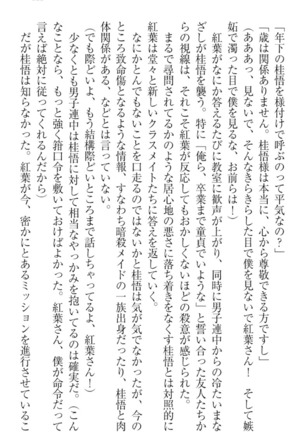 「年下の桂悟を様付けで呼ぶのって平気なの？」
「歳は関係ありません。桂悟様は本当に、心から尊敬できる方ですし」
（あああっ、見ないで、そんなきらきらした目で僕を見ないで紅葉さん！　そして嫉
妬で濁った目で僕を見るな、お前らは！）
　紅葉がなにか答えるたびに教室に歓声が上がり、同時に男子連中からの冷たいまな
ざしが桂悟を襲う。特に「俺ら、卒業まで童貞でいような」と誓い合った友人たちか
らの視線は、それこそ紅葉が反応してもおかしくないほどの殺意が感じられた。
　まるで尋問されてるかのような居心地の悪さに落ち着きをなくす桂悟とは対照的に
紅葉は堂々と新しいクラスメイトたちに答えを返していく。
　なにかとんでもないことを口走るのではないかと桂悟は気が気でなかったが、今の
ところ致命傷となるような情報、すなわち暗殺メイドの一族出身だったり、桂悟と肉
体関係がある、などとは言っていない。
（でも際どいよ、もう結構際どいところまで話しちゃってるよ、紅葉さん！）
　少なくとも男子連中は桂悟に対して相当なやっかみを抱いてるのは確実だ。（こん
なことなら、もっと強く箝口令を敷いておけばよかった。紅葉さん、僕が命令だって
言えば絶対に従ってくれるんだから）
　だが桂悟は知らなかった。紅葉が今、密かにとあるミッションを進行させているこ